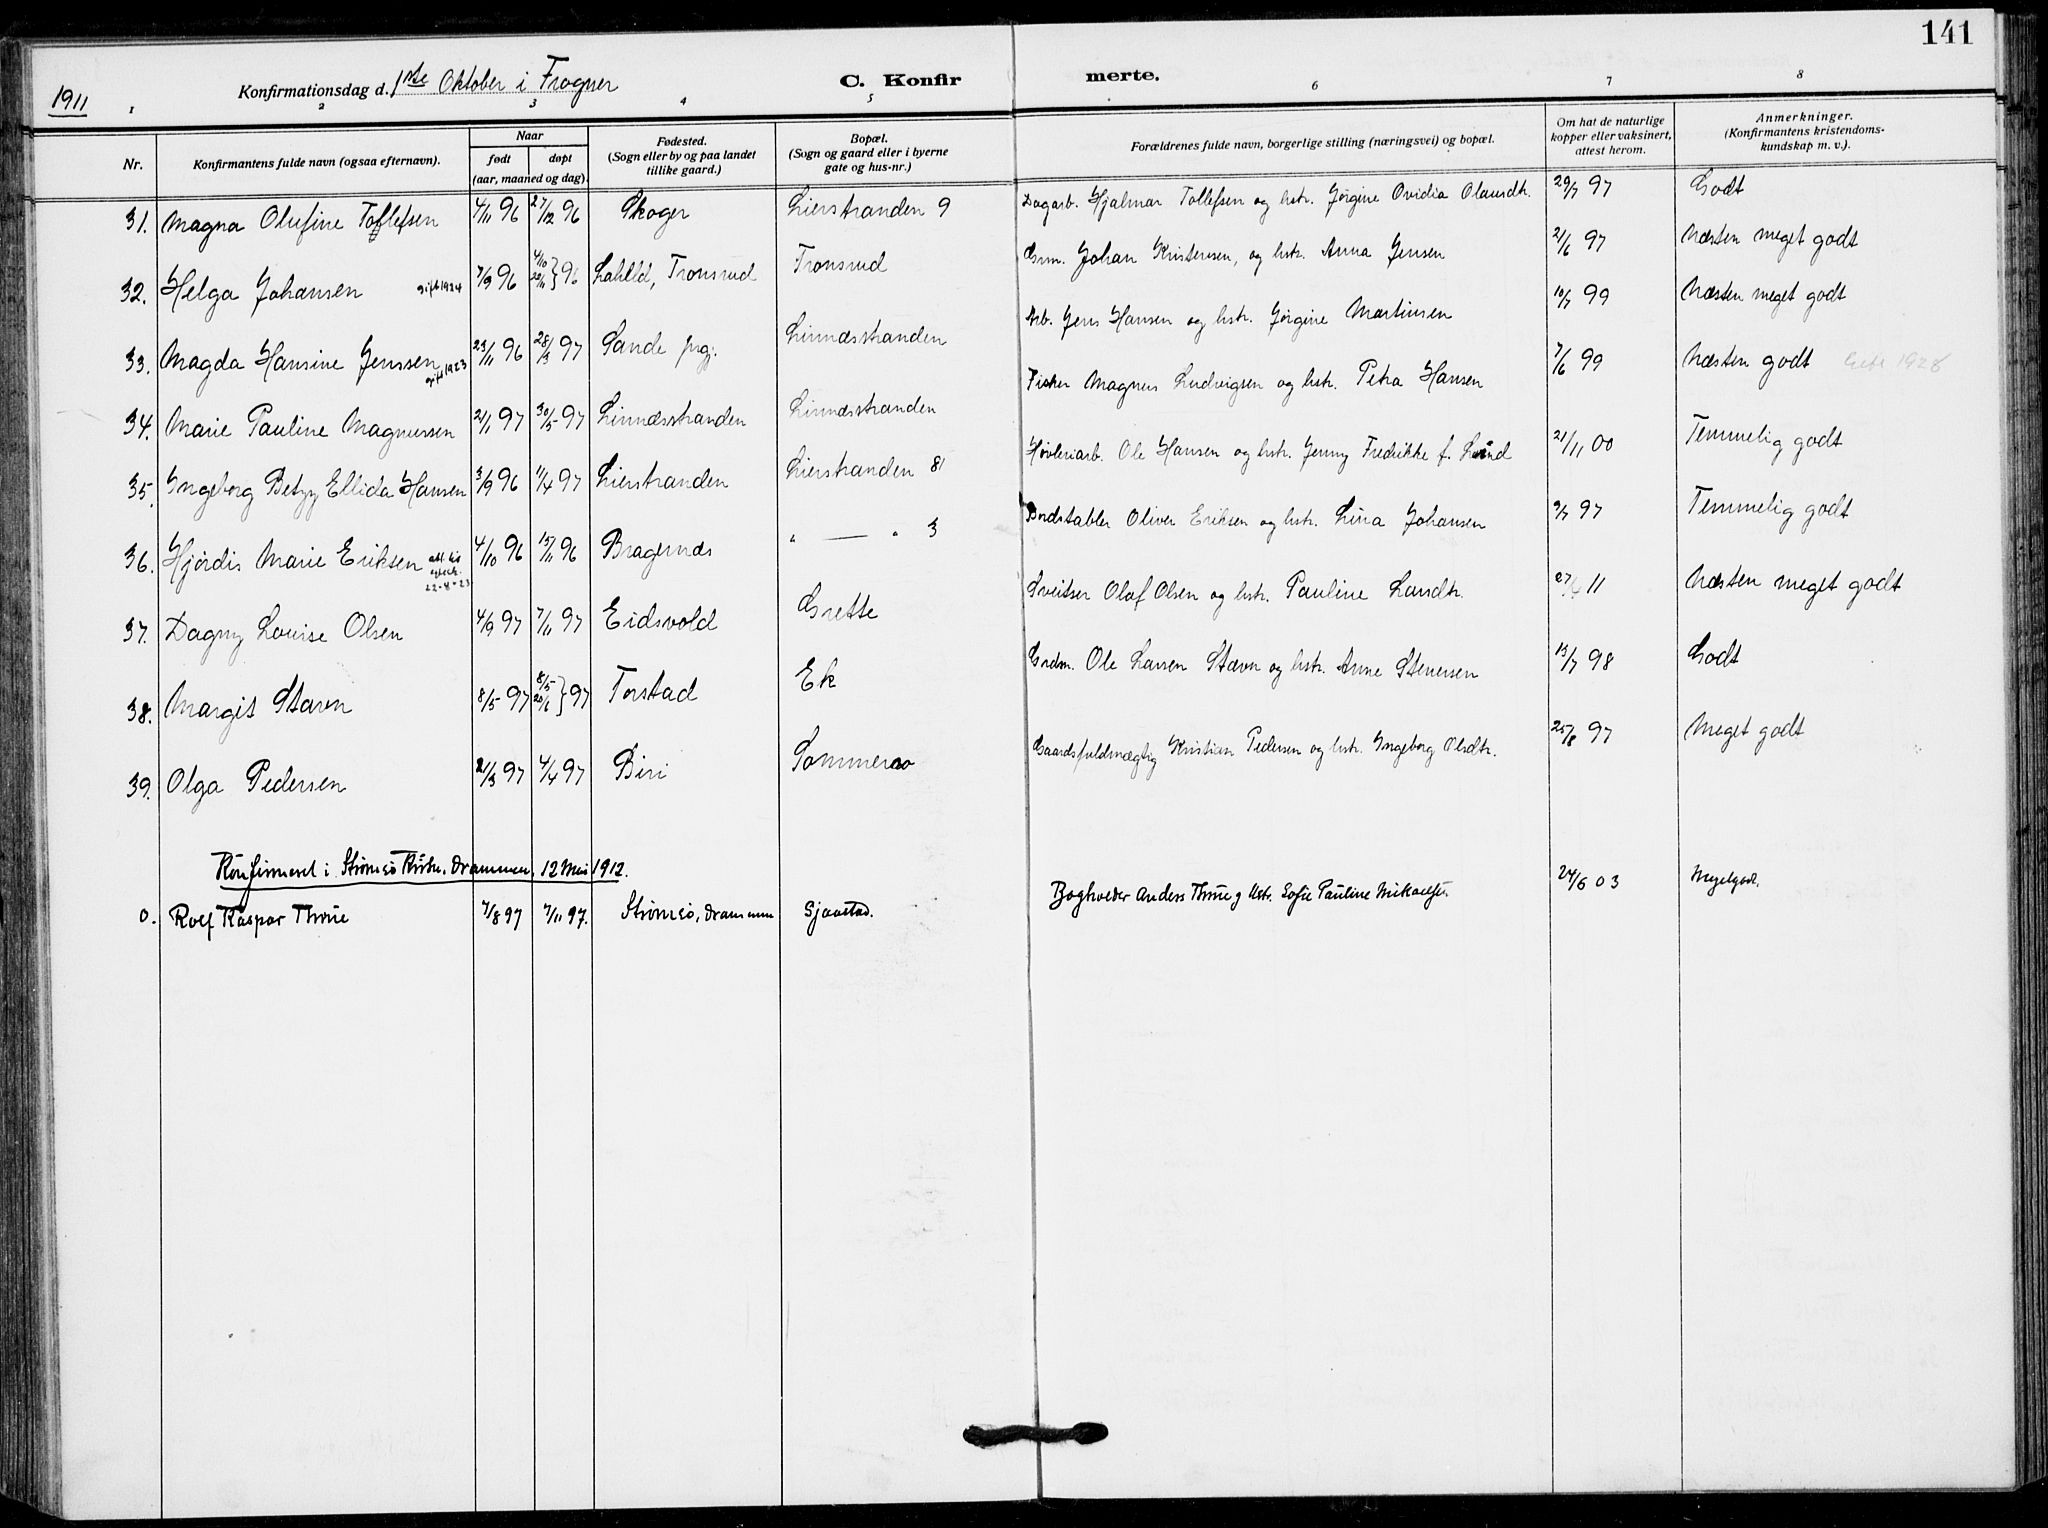 141
1911 Konfirmationsdag d. 1ste Oktober i Frogner C. Konfirmerte.
1 2 3 4 5 6 7 8
Nr. Konfirmantens fulde navn (ogsaa efternavn). Naar født døpt (aar, maaned og dag). Fødested. (Sogn eller by og paa landet tillike gaard.) Bopæl. (Sogn og gaard eller i byerne gate og hus-nr.) Forældrenes fulde navn, borgerlige stilling (næringsvei) og bopæl. Om hat de naturlige kopper eller vaksinert, attest herom. Anmerkninger. (Konfirmantens kristendomskundskap m. v.).
31. Magna Olufine Tollefsen 4/11 96 27/12 96 Skoger Lierstranden 9 Dagarb. Hjalmar Tollefsen og hstr. Jørgine Ovidia Olausdtr. 29/7 97 Godt
32. Helga Johansen gift 1924 7/9 96 4/10 29/11 } 96 Tronsrud Tronsrud Grm. Johan Kristensen, og hstr. Anna Jensen 21/6 97 Næsten meget godt
33. Magda Hansine Jenssen gift 1923 23/11 96 28/3 97 Sande prgj. Linnæsstranden Arb. Jens Hansen og hstr. Jørgine Martinsen 10/7 99 Næsten meget godt
34. Marie Pauline Magnussen 21/1 97 30/5 97 Linnæsstranden Linnæsstranden Fisker Magnus Ludvigsen og hstr. Petra Hansen 7/6 99 Næsten godt 1928
35. Ingeborg Betzy Ellida Hansen 3/9 96 11/4 97 Lierstranden Lierstranden 81 Høvleriarb. Ole Hansen og hstr. Jenny Fredrikke f. Lund 21/11 00 Temmelig godt
36. Hjørdis Marie Eriksen 22-4-23 4/10 96 15/11 96 Bragernæs " — " 3 Bordstabler Oliver Eriksen og hstr. Lina Johansen 9/7 97 Temmelig godt
37. Dagny Louise Olsen 4/9 97 7/11 97 Eidsvold Grette Sveitser Olaf Olsen og hstr. Pauline Landtr. 11 Næsten meget godt
38. Margit Stavn 8/5 97 8/5 20/6 } 97 Torstad Ek Grdm. Ole Larsen Stavn og hstr. Anne Stenersen 13/7 98 Godt
39. Olga Pedersen 21/3 97 4/4 97 Biri Sommero Gaardsfuldmægtig Kristian Pedersen og hstr. Ingeborg Olsdtr. 25/8 97 Meget godt
Konfirmeret i Strømsø Kirke, Drammen, 12 Mai 1912.
0. Rolf Kaspar Thrue 7/8 97 7/11 97. Strømsø, Drammen Sjaastad. Bogholder Anders Thrue og Hstr. Sofie Pauline 24/6 03 Megetgodt.